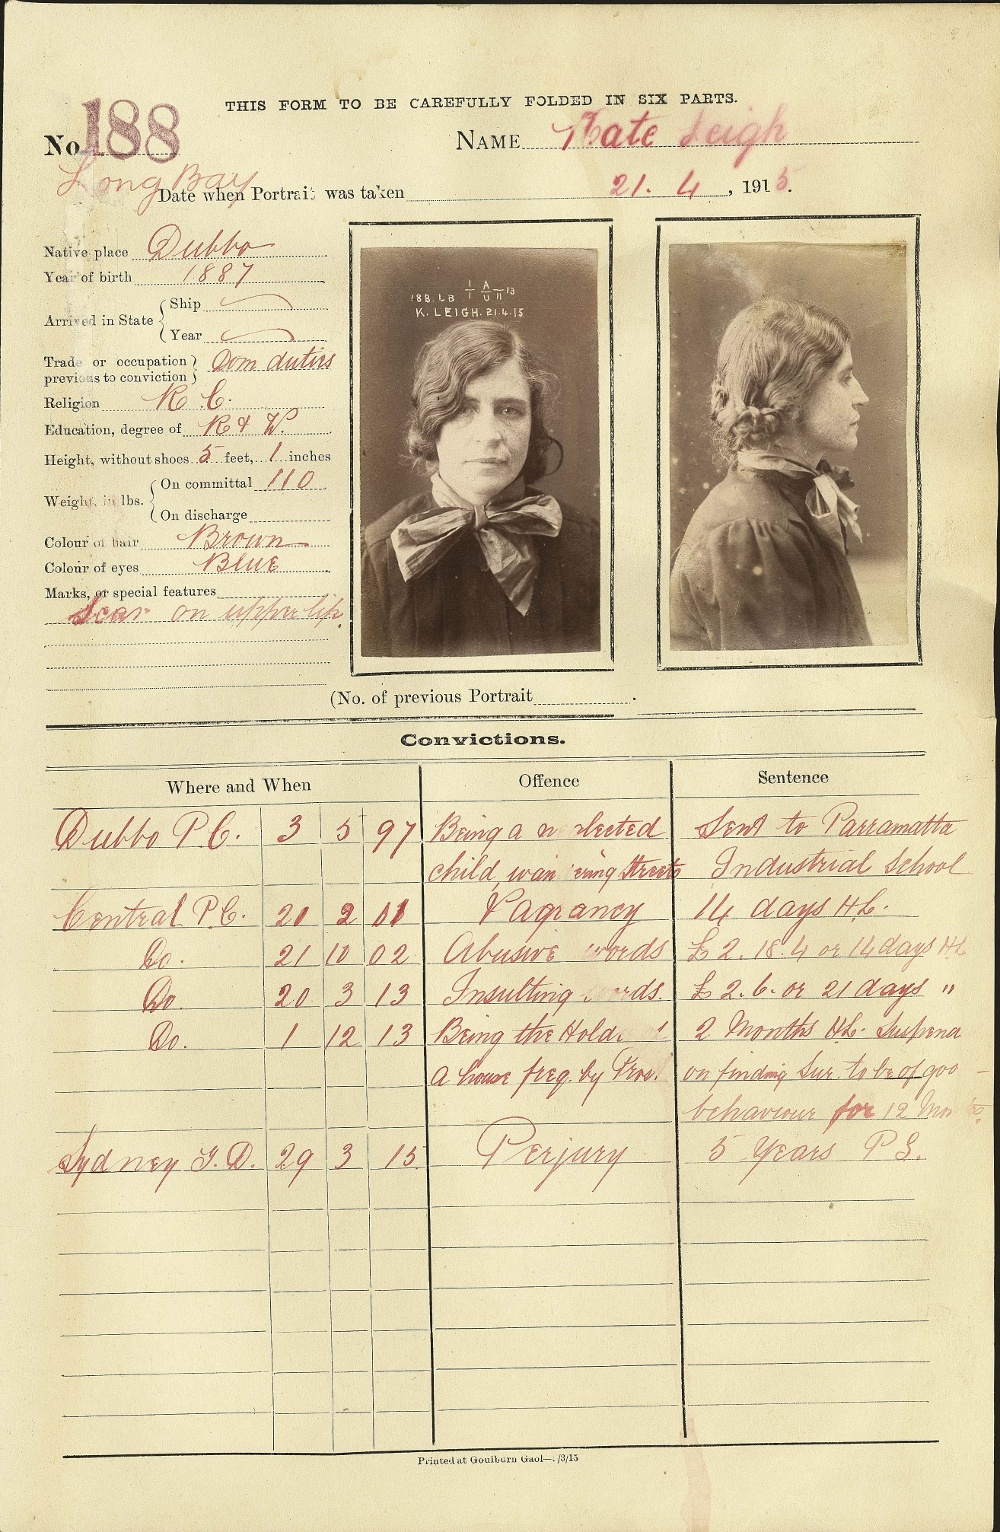 THIS FORM TO BE CAREFULLY FOLDED IN SIX PARTS.
No. 188
NAME Kate Leigh
Long Bay
Date when Portrait was taken 21. 4, 1915.
Native place Dubbo
Year of birth 1887
Arrived in State { Ship
Year
Trade or occupation } Dom duties
previous to conviction }
Religion R C.
Education, degree of R & W.
Height, without shoes 5 feet, 1 inches
Weight, in lbs. { On committal 110
On discharge
Colour of hair Brown
Colour of eyes Blue
Marks, or special features
Scar on upper lip.
188. LB
K. LEIGH. 21.4.15
(No. of previous Portrait .
Convictions.
Where and When Offence Sentence
Dubbo P C. 3 5 97 Being a Sent to Parramatta
child Streets Industrial School
Central P.C. 20 2 01 Vagrancy 14 days H.L.
Do. 21 10 02 Abusive words £2. 18. 4 or 14 days H.L
Do 20 3 13 Insulting words. £2. 6. or 21 days "
Do. 1 12 13 Being the 2 Months H.L. Suspend
a house freq. by on finding Sur. to be of goo
behaviour for 12
Sydney G. D. 29 3 15 Perjury 5 Years P S.
Printed at Goulburn Gaol— /3/15